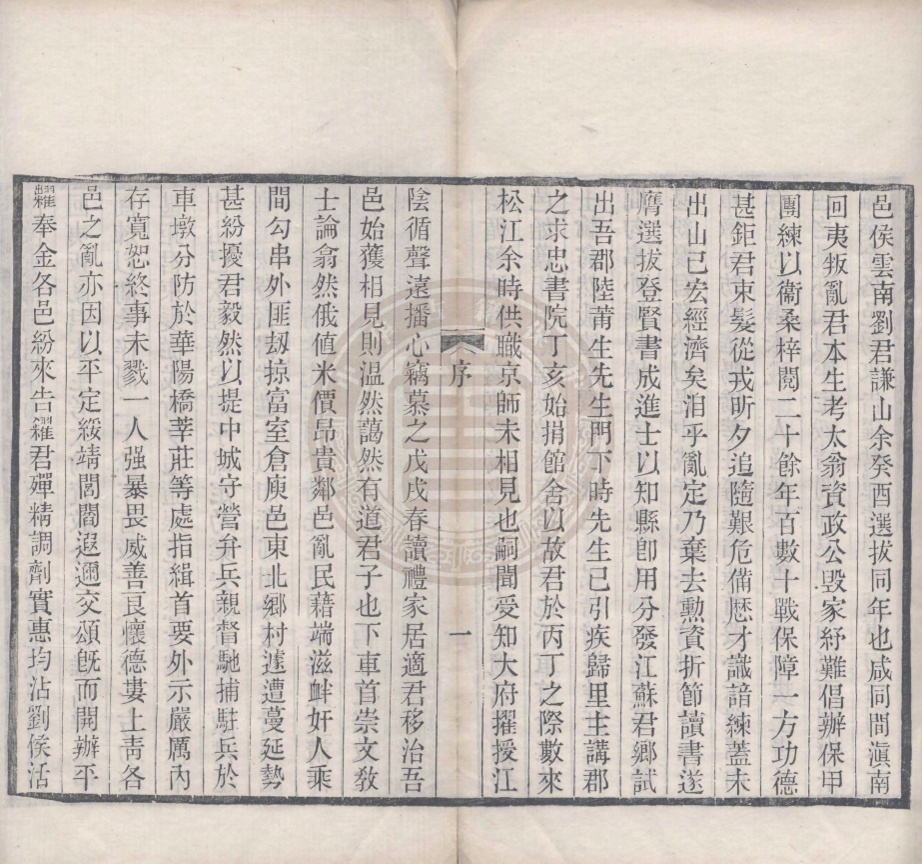 邑侯雲南劉君謙山余癸酉選拔同年也咸同間滇南
回夷叛亂君本生考太翁資政公毁家紓難倡辦保甲
團練以衞桑梓閱二十餘年百數十戰保障一方功德
甚鉅君束髮從戎昕夕追隨艱危備歷才識諳練蓋未
出山已宏經濟矣洎乎亂定乃棄去勳資折節讀書遂
膺選拔登賢書成進士以知縣卽用分發江蘇君鄉試
出吾郡陸莆生先生門下時先生已引疾歸里主講郡
之求忠書院丁亥始捐館舍以故君於丙丁之際數來
松江余時供職京師未相見也嗣聞受知大府擢授江
序
一
陰循聲遠播心竊慕之戊戌春讀禮家居適君移治吾
邑始獲相見則温然藹然有道君子也下車首崇文敎
士論翕然俄值米價昂貴鄰邑亂民藉端滋衅奸人乘
間勾串外匪刼掠富室倉庾邑東北鄉村遽遭蔓延勢
甚紛擾君毅然以提中城守營弁兵親督馳捕駐兵於
車墩分防於華陽橋莘莊等處指緝首要外示嚴厲內
存寬恕終事未戮一人强暴畏威善良懷德婁上靑各
邑之亂亦因以平定綏靖閭閻遐邇交頌旣而開辦平
糶奉金各邑紛來告糴君殫精調劑實惠均沾劉侯活